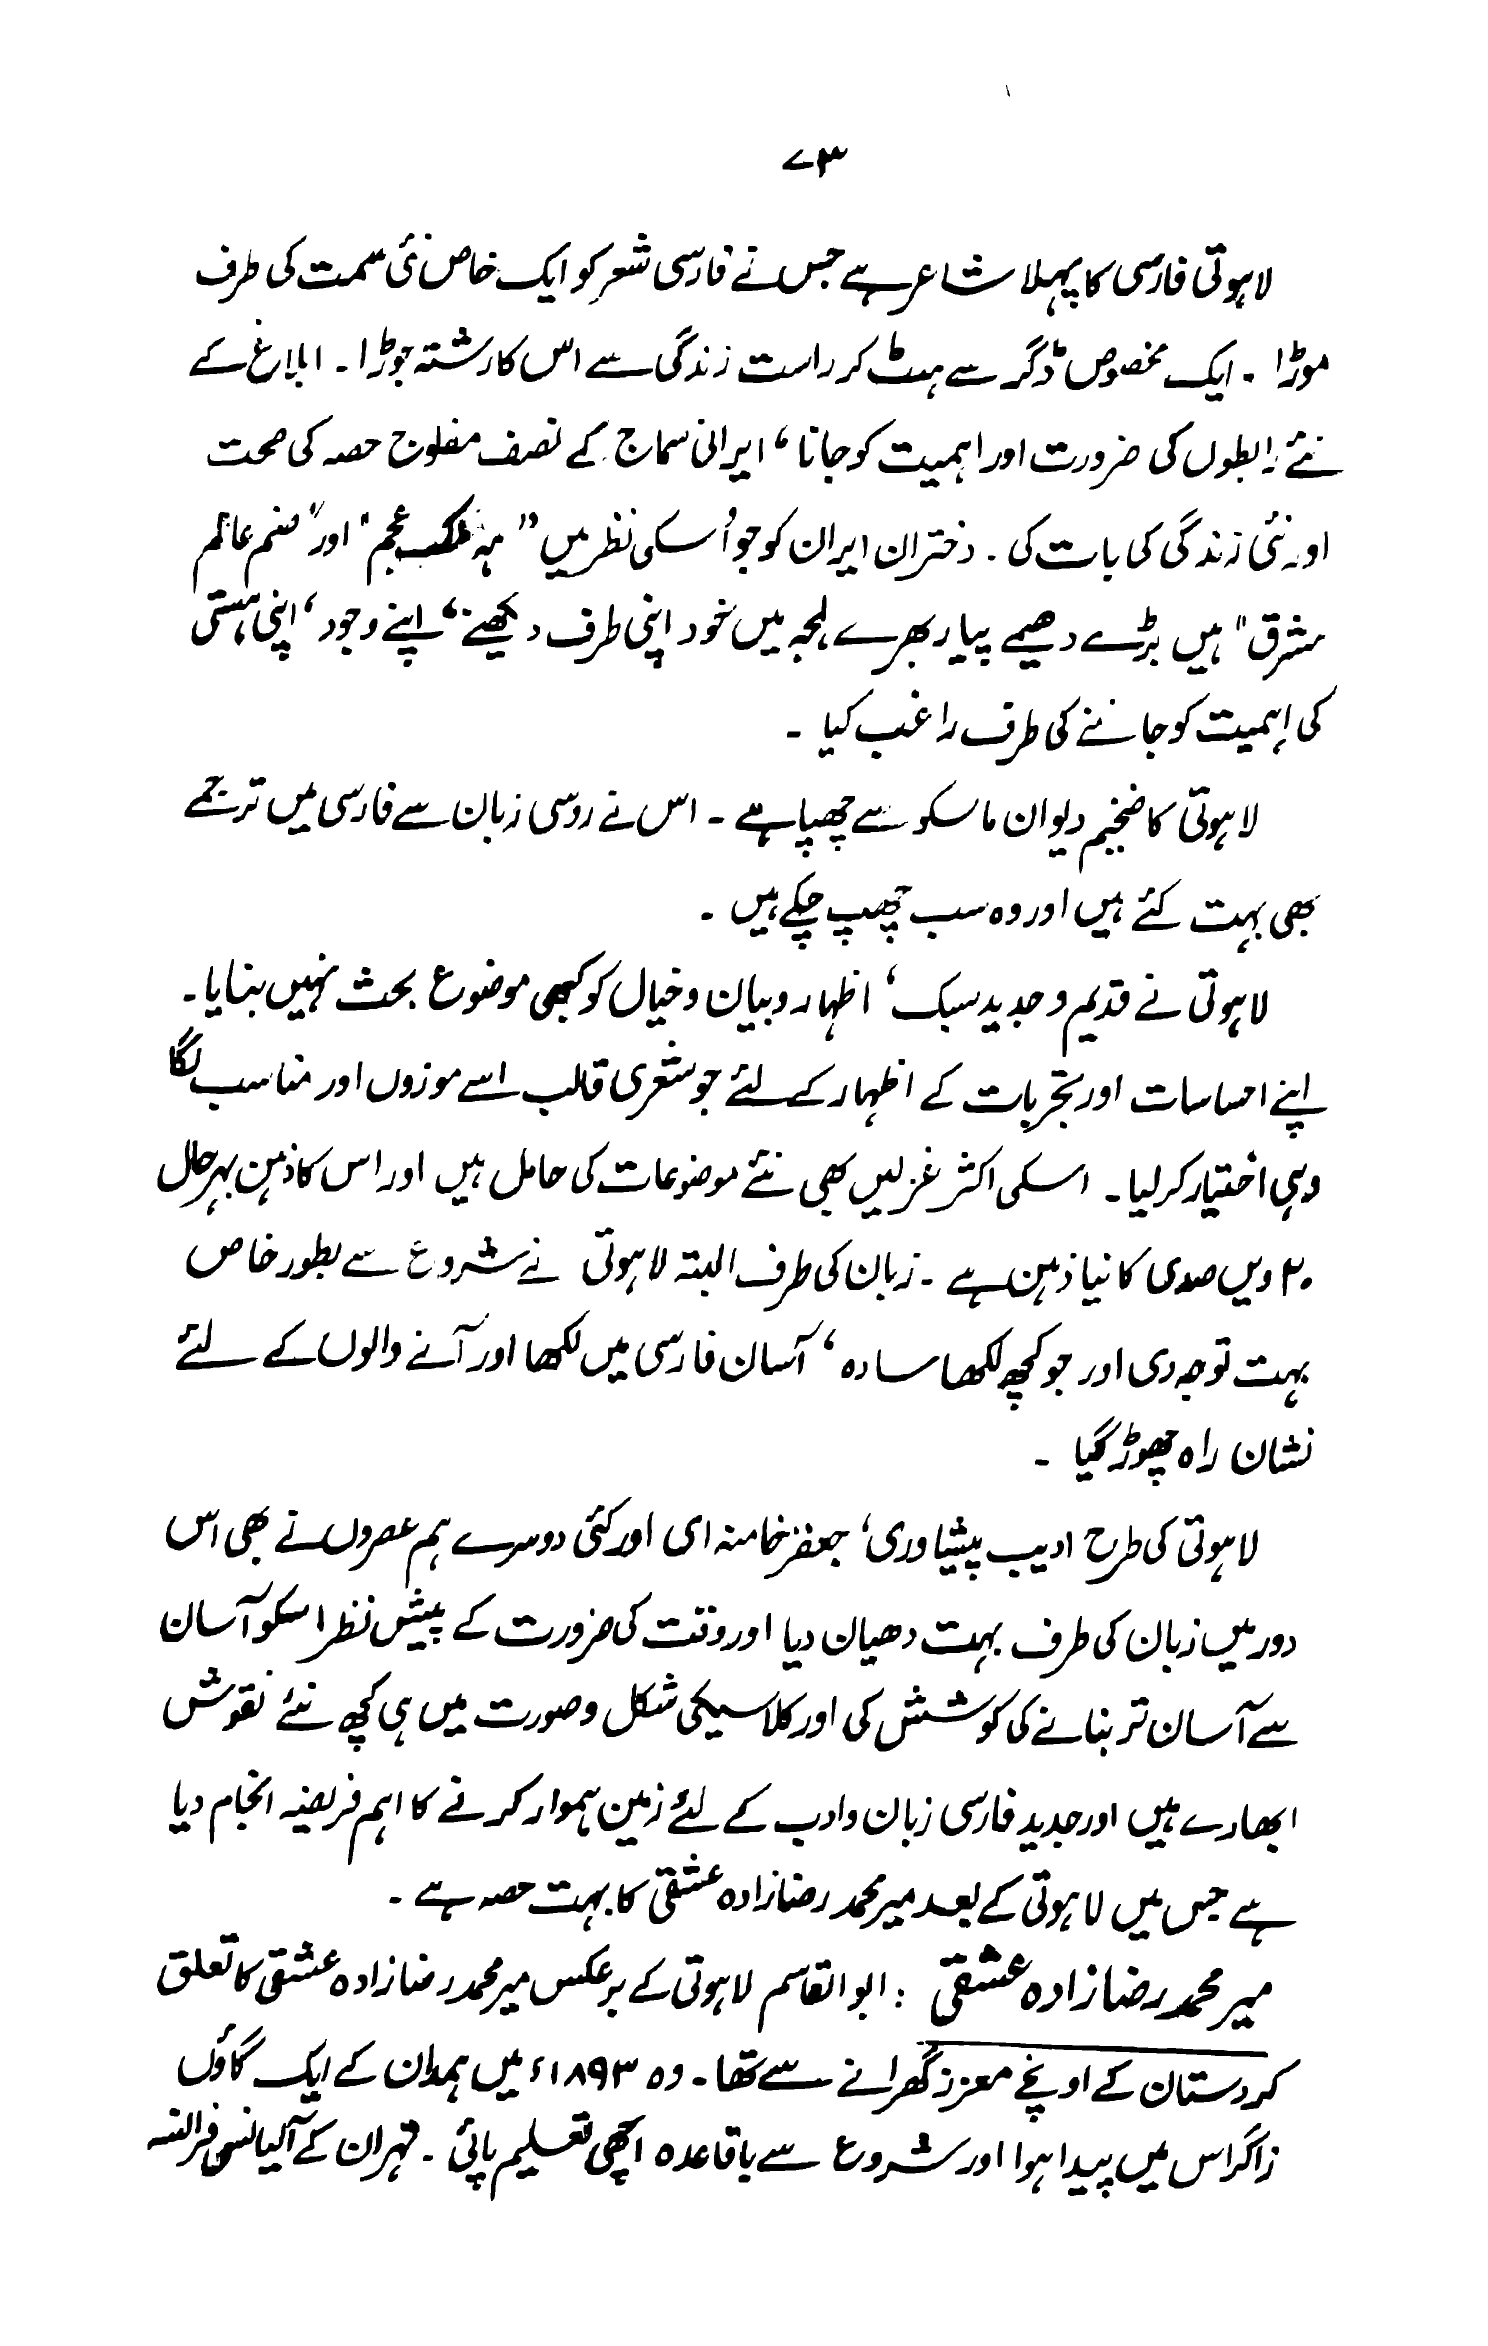 ۷۳
لاہوتی فارسی کا پہلا شاعر ہے جس نے فارسی شعر کو ایک خاص نئی سمت کی طرف
موڑا ۔ ایک مخصوص ڈگر سے ہٹ کر راست زندگی سے اس کا رشتہ جوڑا ۔ ابلاغ کے
نئے رابطوں کی ضرورت اور اہمیت کو جانا ‘ ایرانی سماج کے نصف مفلوج حصہ کی صحت
اور نئی زندگی کی بات کی ۔ دختران ایران کو جو اُسکی نظر میں ” مہ ملک عجم “ اور ” صنم عالم
مشرق “ ہیں بڑے دھیمے پیار بھرے لہجہ میں خود اپنی طرف دیکھنے ‘ اپنے وجود ‘ اپنی ہستی
کی اہمیت کو جاننے کی طرف راغب کیا ۔
لاہوتی کا ضخیم دیوان ماسکو سے چھپا ہے ۔ اس نے روسی زبان سے فارسی میں ترجمے
بھی بہت کئے ہیں اور وہ سب چھپ چکے ہیں ۔
لاہوتی نے قدیم و جدید سبک ‘ اظہار و بیان و خیال کو کبھی موضوع بحث نہیں بنایا ۔
اپنے احساسات اور تجربات کے اظہار کے لئے جو شعری قالب اسے موزوں اور مناسب لگا
وہی اختیار کر لیا ۔ اسکی اکثر غزلیں بھی نئے موضوعات کی حامل ہیں اور اس کا ذہن بہرحال
۲۰ ویں صدی کا نیا ذہن ہے ۔ زبان کی طرف البتہ لاہوتی نے شروع سے بطور خاص
بہت توجہ دی اور جو کچھ لکھا سادہ ‘ آسان فارسی میں لکھا اور آنے والوں کے لئے
نشان راہ چھوڑ گیا ۔
لاہوتی کی طرح ادیب پیشاوری ‘ جعفر خامنہ ای اور کئی دوسرے ہم عصروں نے بھی اس
دور میں زبان کی طرف بہت دھیان دیا اور وقت کی ضرورت کے پیش نظر اسکو آسان
سے آسان تر بنانے کی کوشش کی اور کلاسیکی شکل و صورت میں ہی کچھ نئے نقوش
ابھارے ہیں اور جدید فارسی زبان و ادب کے لئے زمین ہموار کرنے کا اہم فریضہ انجام دیا
ہے جس میں لاہوتی کے بعد میر محمد رضا زادہ عشقی کا بہت حصہ ہے ۔
میر محمد رضا زادہ عشقی : ابوالقاسم لاہوتی کے برعکس میر محمد رضا زادہ عشقی کا تعلق
کردستان کے اونچے معزز گھرانے سے تھا ۔ وہ ۱۸۹۳ء میں ہمدان کے ایک گاؤں
زاگراس میں پیدا ہوا اور شروع سے باقاعدہ اچھی تعلیم پائی ۔ تہران کے آلیانس فرانسہ